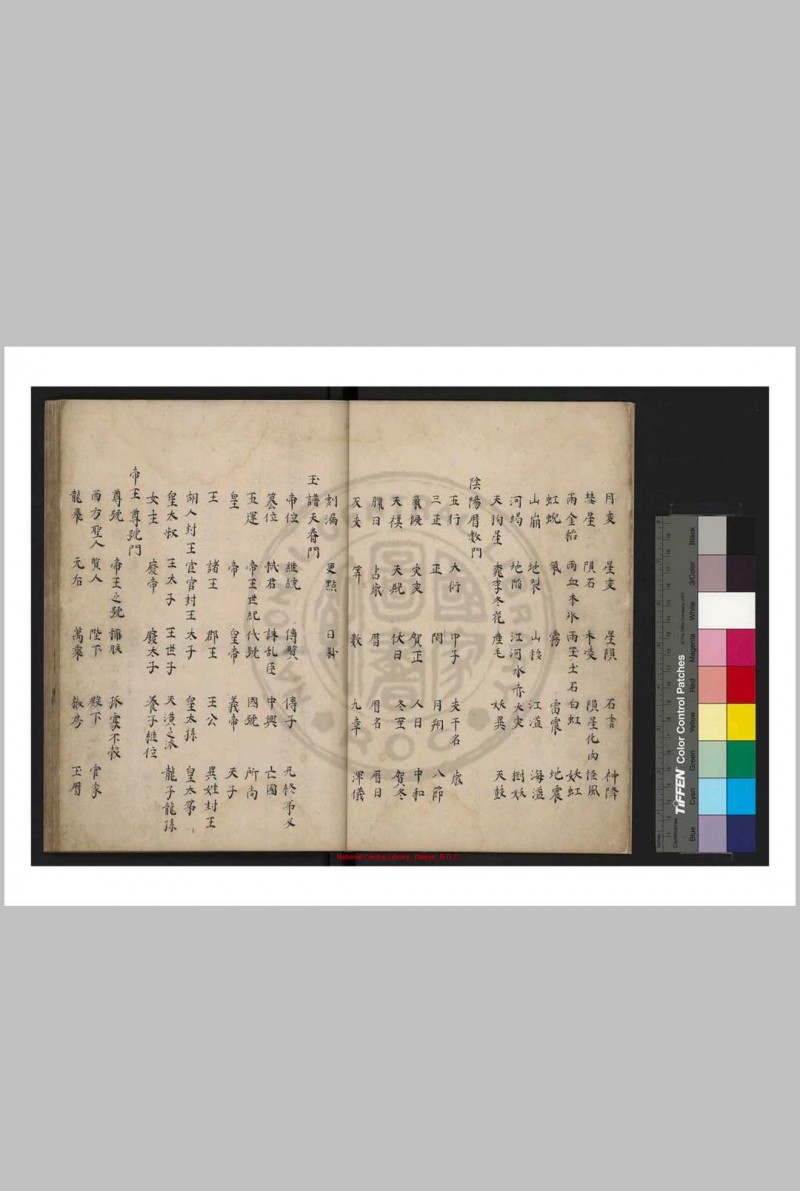 月変 星変 星隕 石言 神降
彗星 隕石 木妖 隕星化肉 怪風
雨金稻 雨血木氷 雨玉土石 白虹 妖虹
虹蜺 氛 霧 雷震 地震
山崩 地裂 山移 江溢 海溢
河竭 地陷 江河水赤 火灾 樹妖
天狗星 桃李冬花 產毛 妖異 天鼓
陰陽曆數門
五行 大衍 甲子 支干名 歲
三正 正 閏 月朔 八節
氣候 灾変 賀正 人日 中和
天穰 天貺 伏日 冬至 賀冬
臘日 占歲 曆 曆名 曆日
算 數 九章 渾儀
刻漏 更點 日卦
玉譜天眷門
帝位 継統 傳賢 傳子 兄終弟及
簒位 弑君 誅乱臣 中興 亡國
五運 帝王世紀 代號 國號 所尚
皇 帝 皇帝 義帝 天子
王 諸王 郡王 王公 異姓封王
胡人封王 宦官封王 太子 皇太孫 皇太弟
皇太叔 王太子 王世子 天潢之派 龍子龍孫
女主 廢帝 廢太子 養子継位
帝王尊號門
尊號 帝王之號 稱朕 孤寡不穀
西方聖人 賢人 陛下 殿下 官家
龍飛 元后 萬乘 椒房 玉曆
National Central Library, Taiwan, R.O.C.
TIFFEN Color Control Patches
Blue Cyan Green Yellow Red Magenta White 3/Color Black